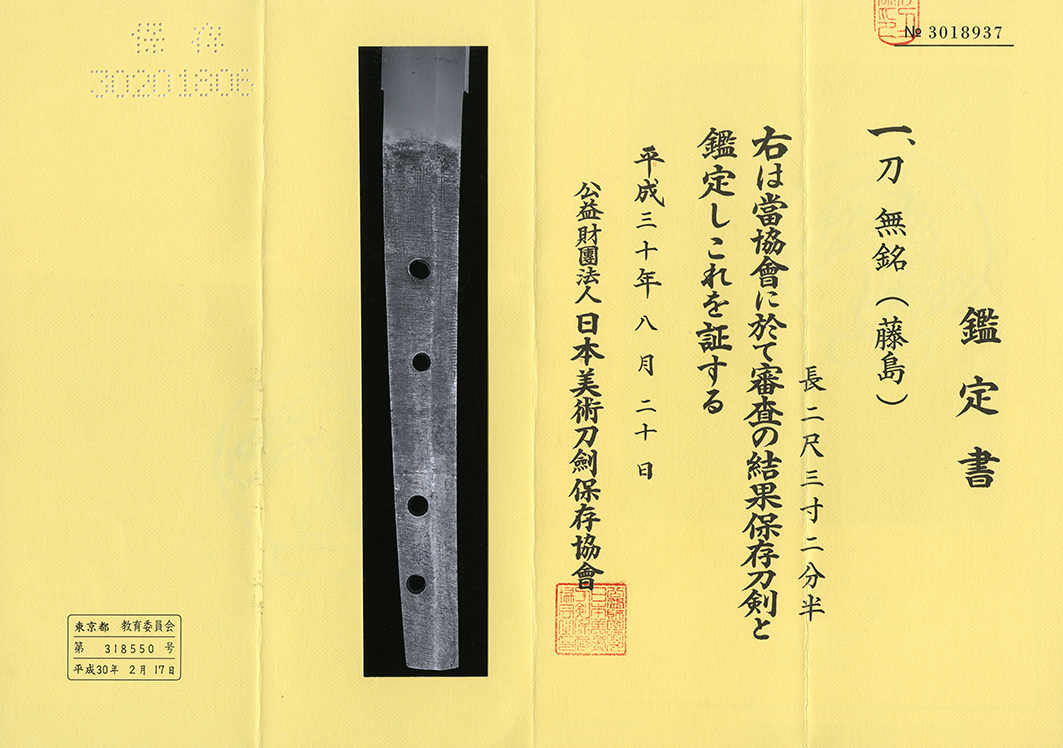 № 3018937
鑑定書
一、刀 無銘(藤島)
長二尺三寸二分半
右は當協會に於て審査の結果保存刀剣と
鑑定しこれを証する
平成三十年八月二十日
公益財團法人 日本美術刀劍保存協會
保存
30201806
東京都 教育委員会
第 318550 号
平成30年 2月 17日